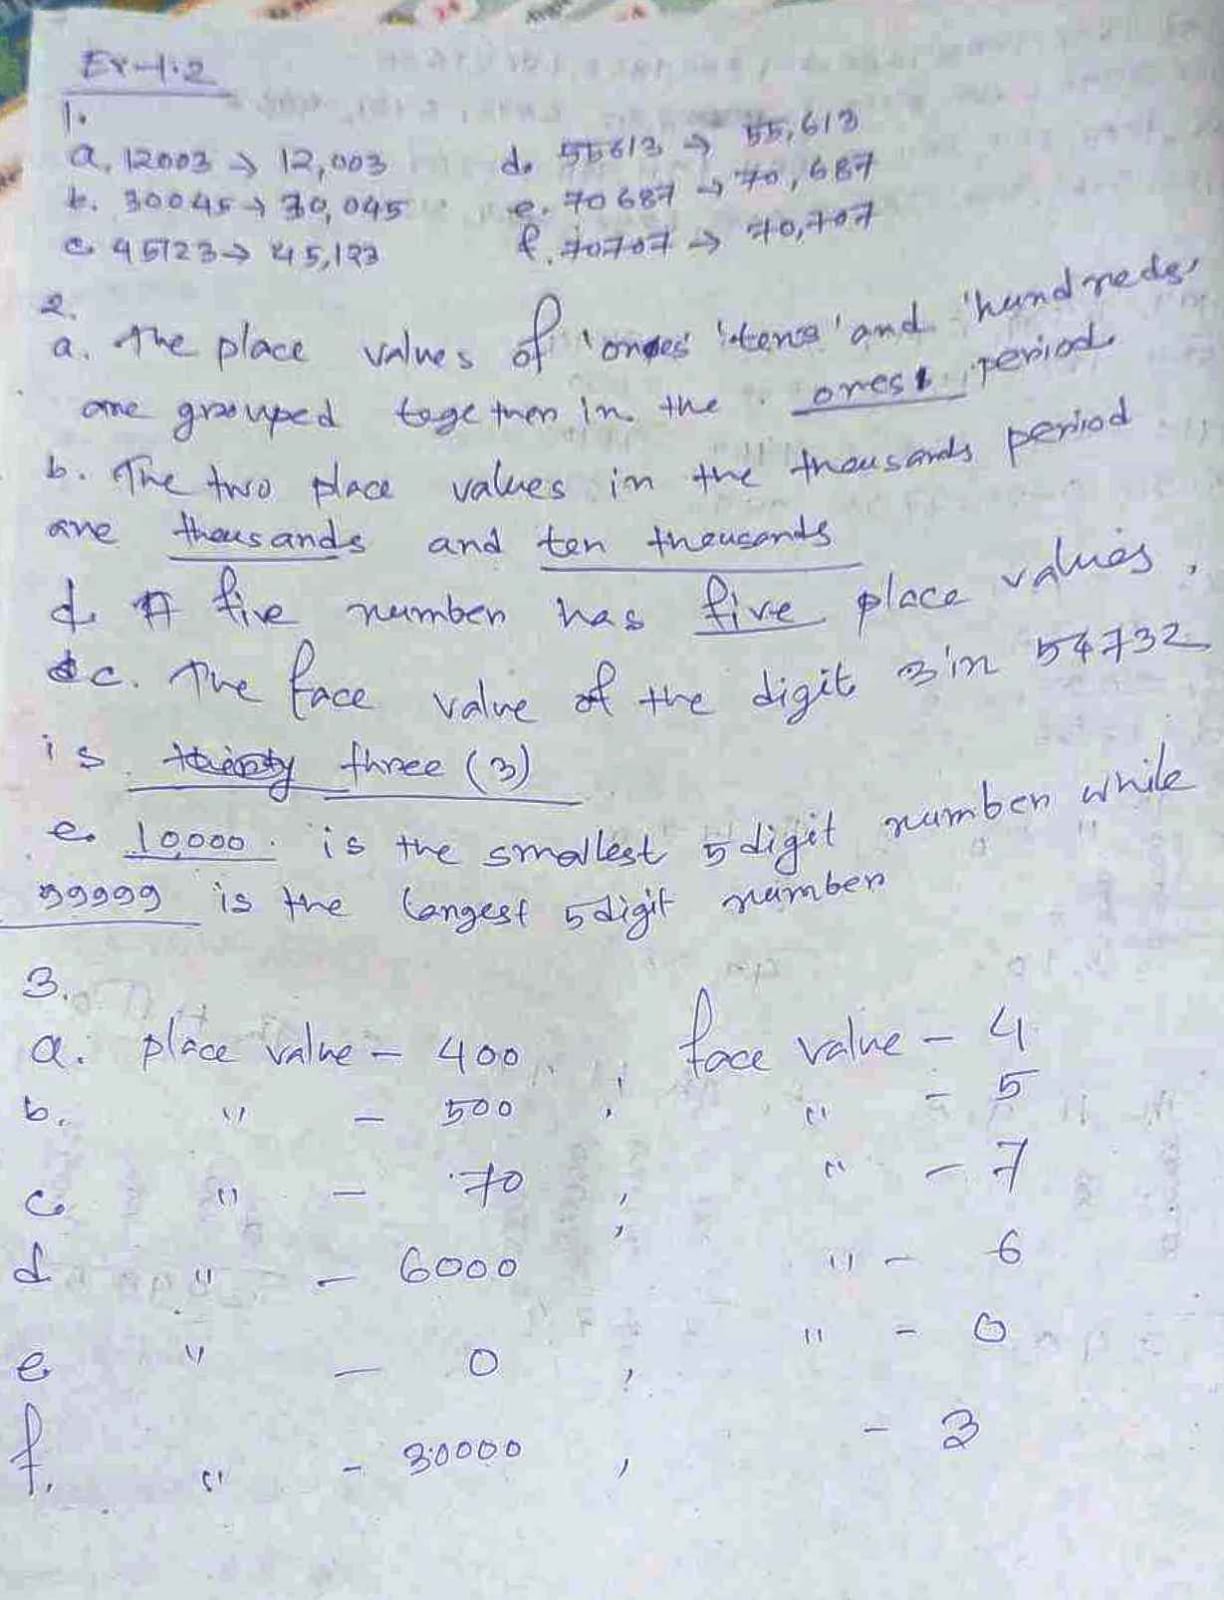 Ex-1.2
1.
a. 12003 → 12,003 d. 55613 → 55,613
b. 30045 → 30,045 e. 70687 → 70,687
c. 45123 → 45,123 f. 70707 → 70,707
2.
a. The place values of 'ones' 'tens' and 'hundreds'
are grouped together in the ones period.
b. The two place values in the thousands period
are thousands and ten thousands
d. A five number has five place values.
c. The face value of the digit 3 in 54732
is thirty three (3)
e. 10,000. is the smallest 5 digit number while
99999 is the largest 5 digit number
3.
a. place value - 400 , face value - 4
b. " - 500 , " - 5
c. " - 70 , " - 7
d " - 6000 , " - 6
e. " - 0 , " - 0
f. " - 30000 , - 3